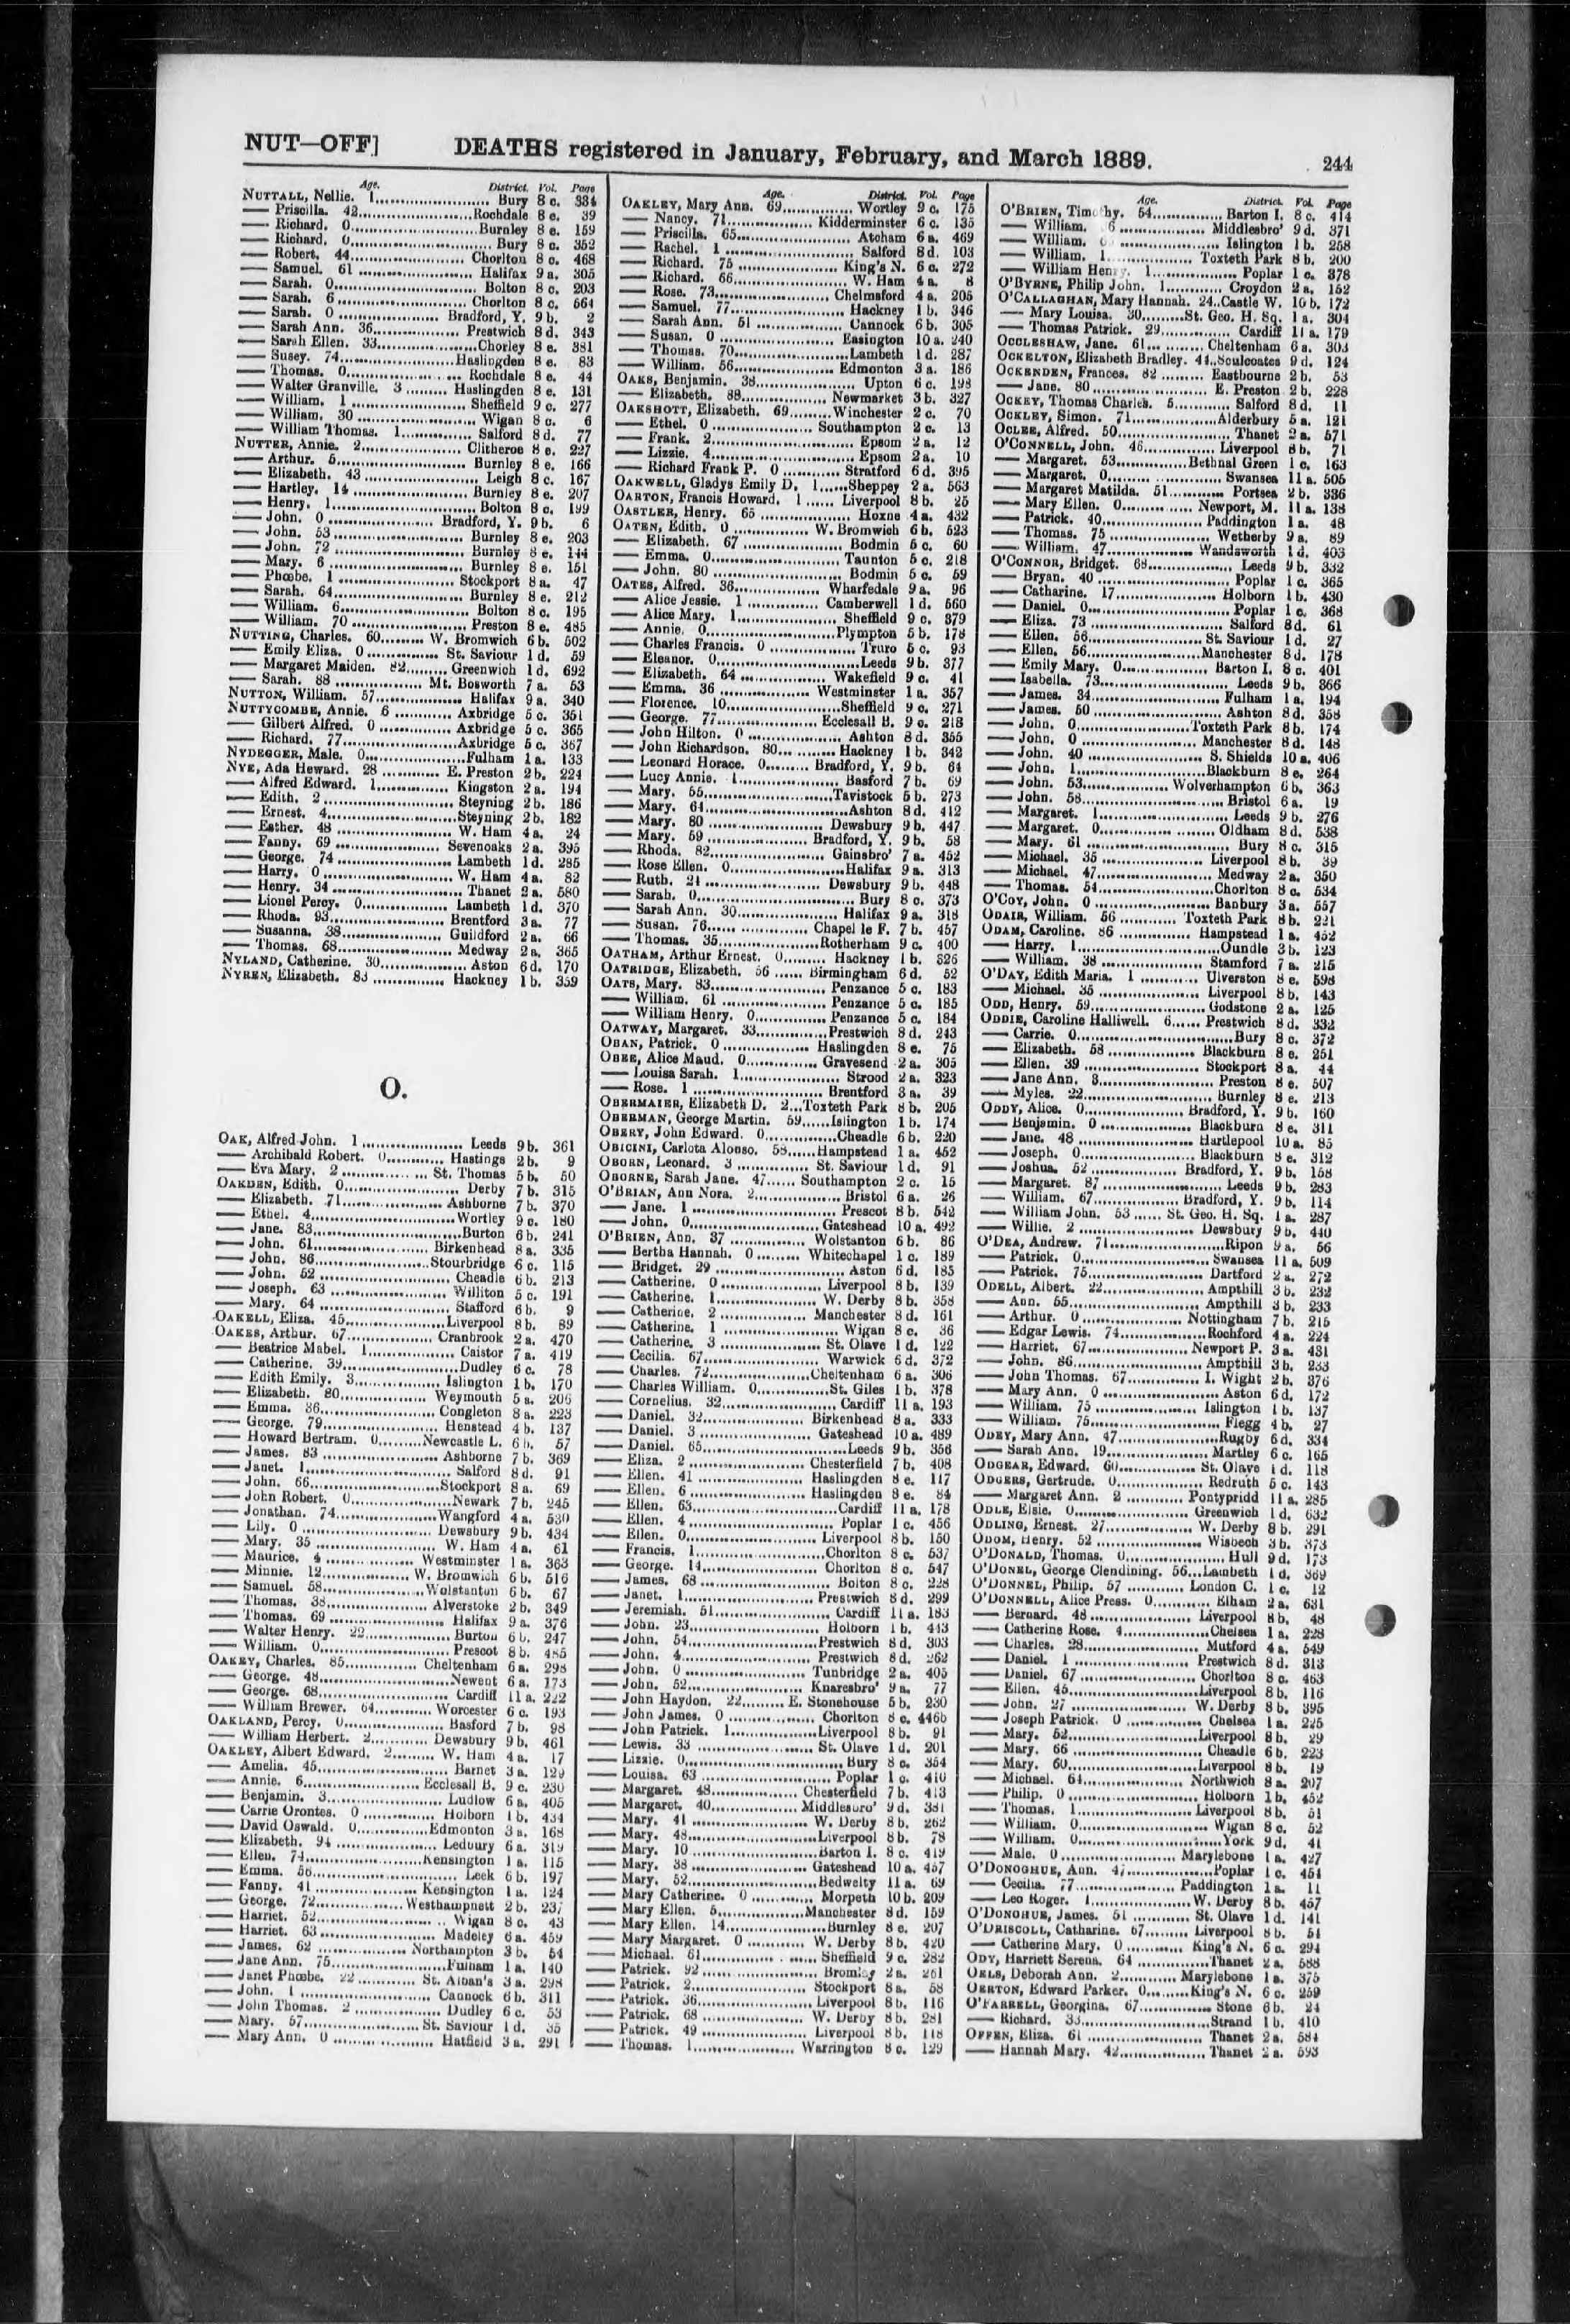 NUT—OFF] DEATHS registered in January, February, and March 1889. 244
Age. District. Vol. Page
NUTTALL, Nellie. 1 Bury 8 c. 384
— Priscilla. 42 Rochdale 8 e. 39
— Richard. 0 Burnley 8 e. 159
— Richard. 0 Bury 8 c. 352
— Robert. 44 Chorlton 8 c. 468
— Samuel. 61 Halifax 9 a. 305
— Sarah. 0 Bolton 8 c. 203
— Sarah. 6 Chorlton 8 c. 564
— Sarah. 0 Bradford, Y. 9 b. 2
— Sarah Ann. 36 Prestwich 8 d. 343
— Sarah Ellen. 33 Chorley 8 e. 381
— Susey. 74 Haslingden 8 e. 83
— Thomas. 0 Rochdale 8 e. 44
— Walter Granville. 3 Haslingden 8 e. 131
— William. 1 Sheffield 9 c. 277
— William. 30 Wigan 8 c. 6
— William Thomas. 1 Salford 8 d. 77
NUTTER, Annie. 2 Clitheroe 8 e. 227
— Arthur. 5 Burnley 8 e. 166
— Elizabeth. 43 Leigh 8 c. 167
— Hartley. 14 Burnley 8 e. 207
— Henry. 1 Bolton 8 c. 199
— John. 0 Bradford, Y. 9 b. 6
— John. 53 Burnley 8 e. 203
— John. 72 Burnley 8 e. 144
— Mary. 6 Burnley 8 e. 151
— Phœbe. 1 Stockport 8 a. 47
— Sarah. 64 Burnley 8 e. 212
— William. 6 Bolton 8 c. 195
— William. 70 Preston 8 e. 485
NUTTING, Charles. 60 W. Bromwich 6 b. 502
— Emily Eliza. 0 St. Saviour 1 d. 59
— Margaret Maiden. 82 Greenwich 1 d. 692
— Sarah. 88 Mt. Bosworth 7 a. 53
NUTTON, William. 57 Halifax 9 a. 340
NUTTYCOMBE, Annie. 6 Axbridge 5 c. 351
— Gilbert Alfred. 0 Axbridge 5 c. 365
— Richard. 77 Axbridge 5 c. 367
NYDEGGER, Male. 0 Fulham 1 a. 133
NYE, Ada Heward. 28 E. Preston 2 b. 224
— Alfred Edward. 1 Kingston 2 a. 194
— Edith. 2 Steyning 2 b. 186
— Ernest. 4 Steyning 2 b. 182
— Esther. 48 W. Ham 4 a. 24
— Fanny. 69 Sevenoaks 2 a. 395
— George. 74 Lambeth 1 d. 285
— Harry. 0 W. Ham 4 a. 82
— Henry. 34 Thanet 2 a. 580
— Lionel Percy. 0 Lambeth 1 d. 370
— Rhoda. 93 Brentford 3 a. 77
— Susanna. 38 Guildford 2 a. 66
— Thomas. 68 Medway 2 a. 365
NYLAND, Catherine. 30 Aston 6 d. 170
NYREN, Elizabeth. 83 Hackney 1 b. 359
O.
OAK, Alfred John. 1 Leeds 9 b. 361
— Archibald Robert. 0 Hastings 2 b. 9
— Eva Mary. 2 St. Thomas 5 b. 50
OAKDEN, Edith. 0 Derby 7 b. 315
— Elizabeth. 71 Ashborne 7 b. 370
— Ethel. 4 Wortley 9 c. 180
— Jane. 83 Burton 6 b. 241
— John. 61 Birkenhead 8 a. 335
— John. 86 Stourbridge 6 c. 115
— John. 52 Cheadle 6 b. 213
— Joseph. 63 Williton 5 c. 191
— Mary. 64 Stafford 6 b. 9
OAKELL, Eliza. 45 Liverpool 8 b. 89
OAKES, Arthur. 67 Cranbrook 2 a. 470
— Beatrice Mabel. 1 Caistor 7 a. 419
— Catherine. 39 Dudley 6 c. 78
— Edith Emily. 3 Islington 1 b. 170
— Elizabeth. 80 Weymouth 5 a. 206
— Emma. 36 Congleton 8 a. 223
— George. 79 Henstead 4 b. 137
— Howard Bertram. 0 Newcastle L. 6 b. 57
— James. 83 Ashborne 7 b. 369
— Janet. 1 Salford 8 d. 91
— John. 66 Stockport 8 a. 69
— John Robert. 0 Newark 7 b. 245
— Jonathan. 74 Wangford 4 a. 530
— Lily. 0 Dewsbury 9 b. 434
— Mary. 35 W. Ham 4 a. 61
— Maurice. 4 Westminster 1 a. 363
— Minnie. 12 W. Bromwich 6 b. 516
— Samuel. 58 Wolstanton 6 b. 67
— Thomas. 38 Alverstoke 2 b. 349
— Thomas. 69 Halifax 9 a. 376
— Walter Henry. 22 Burton 6 b. 247
— William. 0 Prescot 8 b. 485
OAKEY, Charles. 85 Cheltenham 6 a. 298
— George. 48 Newent 6 a. 173
— George. 68 Cardiff 11 a. 222
— William Brewer. 64 Worcester 6 c. 193
OAKLAND, Percy. 0 Basford 7 b. 98
— William Herbert. 2 Dewsbury 9 b. 461
OAKLEY, Albert Edward. 2 W. Ham 4 a. 17
— Amelia. 45 Barnet 3 a. 129
— Annie. 6 Ecclesall B. 9 c. 230
— Benjamin. 3 Ludlow 6 a. 405
— Carrie Orontes. 0 Holborn 1 b. 434
— David Oswald. 0 Edmonton 3 a. 168
— Elizabeth. 94 Ledbury 6 a. 319
— Ellen. 74 Kensington 1 a. 115
— Emma. 56 Leek 6 b. 197
— Fanny. 41 Kensington 1 a. 124
— George. 72 Westhampnett 2 b. 237
— Harriet. 52 Wigan 8 c. 43
— Harriet. 63 Madeley 6 a. 459
— James. 62 Northampton 3 b. 54
— Jane Ann. 75 Fulham 1 a. 140
— Janet Phœbe. 22 St. Alban's 3 a. 298
— John. 1 Cannock 6 b. 311
— John Thomas. 2 Dudley 6 c. 53
— Mary. 57 St. Saviour 1 d. 35
— Mary Ann. 0 Hatfield 3 a. 291
Age. District. Vol. Page
OAKLEY, Mary Ann. 69 Wortley 9 c. 175
— Nancy. 71 Kidderminster 6 c. 135
— Priscilla. 65 Atcham 6 a. 469
— Rachel. 1 Salford 8 d. 103
— Richard. 75 King's N. 6 c. 272
— Richard. 66 W. Ham 4 a. 8
— Rose. 73 Chelmsford 4 a. 205
— Samuel. 77 Hackney 1 b. 346
— Sarah Ann. 51 Cannock 6 b. 305
— Susan. 0 Easington 10 a. 240
— Thomas. 70 Lambeth 1 d. 287
— William. 56 Edmonton 3 a. 186
OAKS, Benjamin. 38 Upton 6 c. 198
— Elizabeth. 88 Newmarket 3 b. 327
OAKSHOTT, Elizabeth. 69 Winchester 2 c. 70
— Ethel. 0 Southampton 2 c. 13
— Frank. 2 Epsom 2 a. 12
— Lizzie. 4 Epsom 2 a. 10
— Richard Frank P. 0 Stratford 6 d. 395
OAKWELL, Gladys Emily D. 1 Sheppey 2 a. 563
OARTON, Francis Howard. 1 Liverpool 8 b. 25
OASTLER, Henry. 65 Hoxne 4 a. 432
OATEN, Edith. 0 W. Bromwich 6 b. 523
— Elizabeth. 67 Bodmin 5 c. 60
— Emma. 0 Taunton 5 c. 218
— John. 80 Bodmin 5 c. 59
OATES, Alfred. 36 Wharfedale 9 a. 96
— Alice Jessie. 1 Camberwell 1 d. 560
— Alice Mary. 1 Sheffield 9 c. 379
— Annie. 0 Plympton 5 b. 178
— Charles Francis. 0 Truro 5 c. 93
— Eleanor. 0 Leeds 9 b. 377
— Elizabeth. 64 Wakefield 9 c. 41
— Emma. 36 Westminster 1 a. 357
— Florence. 10 Sheffield 9 c. 271
— George. 77 Ecclesall B. 9 c. 218
— John Hilton. 0 Ashton 8 d. 355
— John Richardson. 80 Hackney 1 b. 342
— Leonard Horace. 0 Bradford, Y. 9 b. 64
— Lucy Annie. 1 Basford 7 b. 69
— Mary. 55 Tavistock 5 b. 273
— Mary. 64 Ashton 8 d. 412
— Mary. 80 Dewsbury 9 b. 447
— Mary. 59 Bradford, Y. 9 b. 58
— Rhoda. 82 Gainsbro' 7 a. 452
— Rose Ellen. 0 Halifax 9 a. 313
— Ruth. 21 Dewsbury 9 b. 448
— Sarah. 0 Bury 8 c. 373
— Sarah Ann. 30 Halifax 9 a. 318
— Susan. 76 Chapel le F. 7 b. 457
— Thomas. 35 Rotherham 9 c. 400
OATHAM, Arthur Ernest. 0 Hackney 1 b. 326
OATRIDGE, Elizabeth. 56 Birmingham 6 d. 52
OATS, Mary. 83 Penzance 5 c. 183
— William. 61 Penzance 5 c. 185
— William Henry. 0 Penzance 5 c. 184
OATWAY, Margaret. 33 Prestwich 8 d. 243
OBAN, Patrick. 0 Haslingden 8 e. 75
OBEE, Alice Maud. 0 Gravesend 2 a. 305
— Louisa Sarah. 1 Strood 2 a. 323
— Rose. 1 Brentford 3 a. 39
OBERMAIER, Elizabeth D. 2 Toxteth Park 8 b. 205
OBERMAN, George Martin. 59 Islington 1 b. 174
OBERY, John Edward. 0 Cheadle 6 b. 220
OBICINI, Carlota Alonso. 58 Hampstead 1 a. 452
OBORN, Leonard. 3 St. Saviour 1 d. 91
OBORNE, Sarah Jane. 47 Southampton 2 c. 15
O'BRIAN, Ann Nora. 2 Bristol 6 a. 26
— Jane. 1 Prescot 8 b. 542
— John. 0 Gateshead 10 a. 492
O'BRIEN, Ann. 37 Wolstanton 6 b. 86
— Bertha Hannah. 0 Whitechapel 1 c. 189
— Bridget. 29 Aston 6 d. 185
— Catherine. 0 Liverpool 8 b. 139
— Catherine. 1 W. Derby 8 b. 358
— Catherine. 2 Manchester 8 d. 161
— Catherine. 1 Wigan 8 c. 36
— Catherine. 3 St. Olave 1 d. 122
— Cecilia. 67 Warwick 6 d. 372
— Charles. 72 Cheltenham 6 a. 306
— Charles William. 0 St. Giles 1 b. 378
— Cornelius. 32 Cardiff 11 a. 193
— Daniel. 32 Birkenhead 8 a. 333
— Daniel. 3 Gateshead 10 a. 489
— Daniel. 65 Leeds 9 b. 356
— Eliza. 2 Chesterfield 7 b. 408
— Ellen. 41 Haslingden 8 e. 117
— Ellen. 6 Haslingden 8 e. 84
— Ellen. 63 Cardiff 11 a. 178
— Ellen. 4 Poplar 1 c. 456
— Ellen. 0 Liverpool 8 b. 150
— Francis. 1 Chorlton 8 c. 537
— George. 14 Chorlton 8 c. 547
— James. 68 Bolton 8 c. 228
— Janet. 1 Prestwich 8 d. 299
— Jeremiah. 51 Cardiff 11 a. 183
— John. 23 Holborn 1 b. 443
— John. 54 Prestwich 8 d. 303
— John. 4 Prestwich 8 d. 262
— John. 0 Tunbridge 2 a. 405
— John. 52 Knaresbro' 9 a. 77
— John Haydon. 22 E. Stonehouse 5 b. 230
— John James. 0 Chorlton 8 c. 446b
— John Patrick. 1 Liverpool 8 b. 91
— Lewis. 33 St. Olave 1 d. 201
— Lizzie. 0 Bury 8 c. 354
— Louisa. 63 Poplar 1 c. 410
— Margaret. 48 Chesterfield 7 b. 413
— Margaret. 40 Middlesbro' 9 d. 381
— Mary. 41 W. Derby 8 b. 262
— Mary. 48 Liverpool 8 b. 78
— Mary. 10 Barton I. 8 c. 419
— Mary. 38 Gateshead 10 a. 457
— Mary. 52 Bedwelty 11 a. 69
— Mary Catherine. 0 Morpeth 10 b. 209
— Mary Ellen. 5 Manchester 8 d. 159
— Mary Ellen. 14 Burnley 8 e. 207
— Mary Margaret. 0 W. Derby 8 b. 420
— Michael. 61 Sheffield 9 c. 282
— Patrick. 92 Bromley 2 a. 261
— Patrick. 2 Stockport 8 a. 58
— Patrick. 36 Liverpool 8 b. 116
— Patrick. 68 W. Derby 8 b. 281
— Patrick. 49 Liverpool 8 b. 118
— Thomas. 1 Warrington 8 c. 129
Age. District. Vol. Page
O'BRIEN, Timothy. 54 Barton I. 8 c. 414
— William. 6 Middlesbro' 9 d. 371
— William. Islington 1 b. 258
— William. 1 Toxteth Park 8 b. 200
— William Henry. 1 Poplar 1 c. 378
O'BYRNE, Philip John. 1 Croydon 2 a. 152
O'CALLAGHAN, Mary Hannah. 24 Castle W. 10 b. 172
— Mary Louisa. 30 St. Geo. H. Sq. 1 a. 304
— Thomas Patrick. 29 Cardiff 11 a. 179
OCCLESHAW, Jane. 61 Cheltenham 6 a. 303
OCKELTON, Elizabeth Bradley. 44 Sculcoates 9 d. 124
OCKENDEN, Frances. 82 Eastbourne 2 b. 53
— Jane. 80 E. Preston 2 b. 228
OCKEY, Thomas Charles. 5 Salford 8 d. 11
OCKLEY, Simon. 71 Alderbury 5 a. 121
OCLEE, Alfred. 50 Thanet 2 a. 571
O'CONNELL, John. 46 Liverpool 8 b. 71
— Margaret. 53 Bethnal Green 1 c. 163
— Margaret. 0 Swansea 11 a. 505
— Margaret Matilda. 51 Portsea 2 b. 336
— Mary Ellen. 0 Newport, M. 11 a. 138
— Patrick. 40 Paddington 1 a. 48
— Thomas. 75 Wetherby 9 a. 89
— William. 47 Wandsworth 1 d. 403
O'CONNOR, Bridget. 68 Leeds 9 b. 332
— Bryan. 40 Poplar 1 c. 365
— Catharine. 17 Holborn 1 b. 430
— Daniel. 0 Poplar 1 c. 368
— Eliza. 73 Salford 8 d. 61
— Ellen. 56 St. Saviour 1 d. 27
— Ellen. 56 Manchester 8 d. 178
— Emily Mary. 0 Barton I. 8 c. 401
— Isabella. 73 Leeds 9 b. 366
— James. 34 Fulham 1 a. 194
— James. 50 Ashton 8 d. 358
— John. 0 Toxteth Park 8 b. 174
— John. 0 Manchester 8 d. 148
— John. 40 S. Shields 10 a. 406
— John. 1 Blackburn 8 e. 264
— John. 53 Wolverhampton 6 b. 363
— John. 58 Bristol 6 a. 19
— Margaret. 1 Leeds 9 b. 276
— Margaret. 0 Oldham 8 d. 538
— Mary. 61 Bury 8 c. 315
— Michael. 35 Liverpool 8 b. 39
— Michael. 47 Medway 2 a. 350
— Thomas. 54 Chorlton 8 c. 534
O'COY, John. 0 Banbury 3 a. 557
ODAIR, William. 56 Toxteth Park 8 b. 221
ODAM, Caroline. 86 Hampstead 1 a. 452
— Harry. 1 Oundle 3 b. 123
— William. 38 Stamford 7 a. 215
O'DAY, Edith Maria. 1 Ulverston 8 e. 598
— Michael. 35 Liverpool 8 b. 143
ODD, Henry. 59 Godstone 2 a. 125
ODDIE, Caroline Halliwell. 6 Prestwich 8 d. 332
— Carrie. 0 Bury 8 c. 372
— Elizabeth. 58 Blackburn 8 e. 251
— Ellen. 39 Stockport 8 a. 44
— Jane Ann. 3 Preston 8 e. 507
— Myles. 22 Burnley 8 e. 213
ODDY, Alice. 0 Bradford, Y. 9 b. 160
— Benjamin. 0 Blackburn 8 e. 311
— Jane. 48 Hartlepool 10 a. 85
— Joseph. 0 Blackburn 8 e. 312
— Joshua. 52 Bradford, Y. 9 b. 158
— Margaret. 87 Leeds 9 b. 283
— William. 67 Bradford, Y. 9 b. 114
— William John. 53 St. Geo. H. Sq. 1 a. 287
— Willie. 2 Dewsbury 9 b. 440
O'DEA, Andrew. 71 Ripon 9 a. 56
— Patrick. 0 Swansea 11 a. 509
— Patrick. 75 Dartford 2 a. 272
ODELL, Albert. 22 Ampthill 3 b. 232
— Ann. 55 Ampthill 3 b. 233
— Arthur. 0 Nottingham 7 b. 215
— Edgar Lewis. 74 Rochford 4 a. 224
— Harriet. 67 Newport P. 3 a. 431
— John. 86 Ampthill 3 b. 233
— John Thomas. 67 I. Wight 2 b. 376
— Mary Ann. 0 Aston 6 d. 172
— William. 75 Islington 1 b. 137
— William. 75 Flegg 4 b. 27
ODEY, Mary Ann. 47 Rugby 6 d. 334
— Sarah Ann. 19 Martley 6 c. 165
ODGEAR, Edward. 60 St. Olave 1 d. 118
ODGERS, Gertrude. 0 Redruth 5 c. 143
— Margaret Ann. 2 Pontypridd 11 a. 285
ODLE, Elsie. 0 Greenwich 1 d. 632
ODLING, Ernest. 27 W. Derby 8 b. 291
ODOM, Henry. 52 Wisbech 3 b. 373
O'DONALD, Thomas. 0 Hull 9 d. 173
O'DONEL, George Clendining. 56 Lambeth 1 d. 369
O'DONNEL, Philip. 57 London C. 1 c. 12
O'DONNELL, Alice Press. 0 Elham 2 a. 631
— Bernard. 48 Liverpool 8 b. 48
— Catherine Rose. 4 Chelsea 1 a. 228
— Charles. 28 Mutford 4 a. 549
— Daniel. 1 Prestwich 8 d. 313
— Daniel. 67 Chorlton 8 c. 463
— Ellen. 45 Liverpool 8 b. 116
— John. 27 W. Derby 8 b. 395
— Joseph Patrick. 0 Chelsea 1 a. 225
— Mary. 52 Liverpool 8 b. 29
— Mary. 66 Cheadle 6 b. 223
— Mary. 60 Liverpool 8 b. 19
— Michael. 64 Northwich 8 a. 207
— Philip. 0 Holborn 1 b. 452
— Thomas. 1 Liverpool 8 b. 51
— William. 0 Wigan 8 c. 52
— William. 0 York 9 d. 41
— Male. 0 Marylebone 1 a. 427
O'DONOGHUE, Ann. 47 Poplar 1 c. 454
— Cecilia. 77 Paddington 1 a. 11
— Leo Roger. 1 W. Derby 8 b. 457
O'DONOHUE, James. 51 St. Olave 1 d. 141
O'DRISCOLL, Catharine. 67 Liverpool 8 b. 51
— Catherine Mary. 0 King's N. 6 c. 294
ODY, Harriett Serena. 64 Thanet 2 a. 588
OELS, Deborah Ann. 2 Marylebone 1 a. 375
OERTON, Edward Parker. 0 King's N. 6 c. 259
O'FARRELL, Georgina. 67 Stone 6 b. 24
— Richard. 33 Strand 1 b. 410
OFFEN, Eliza. 61 Thanet 2 a. 584
— Hannah Mary. 42 Thanet 2 a. 593